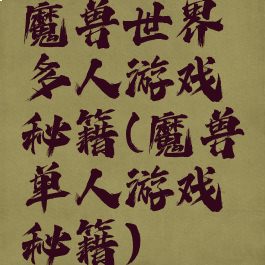 魔兽世界
多人游戏
秘籍(魔兽
单人游戏
秘籍)